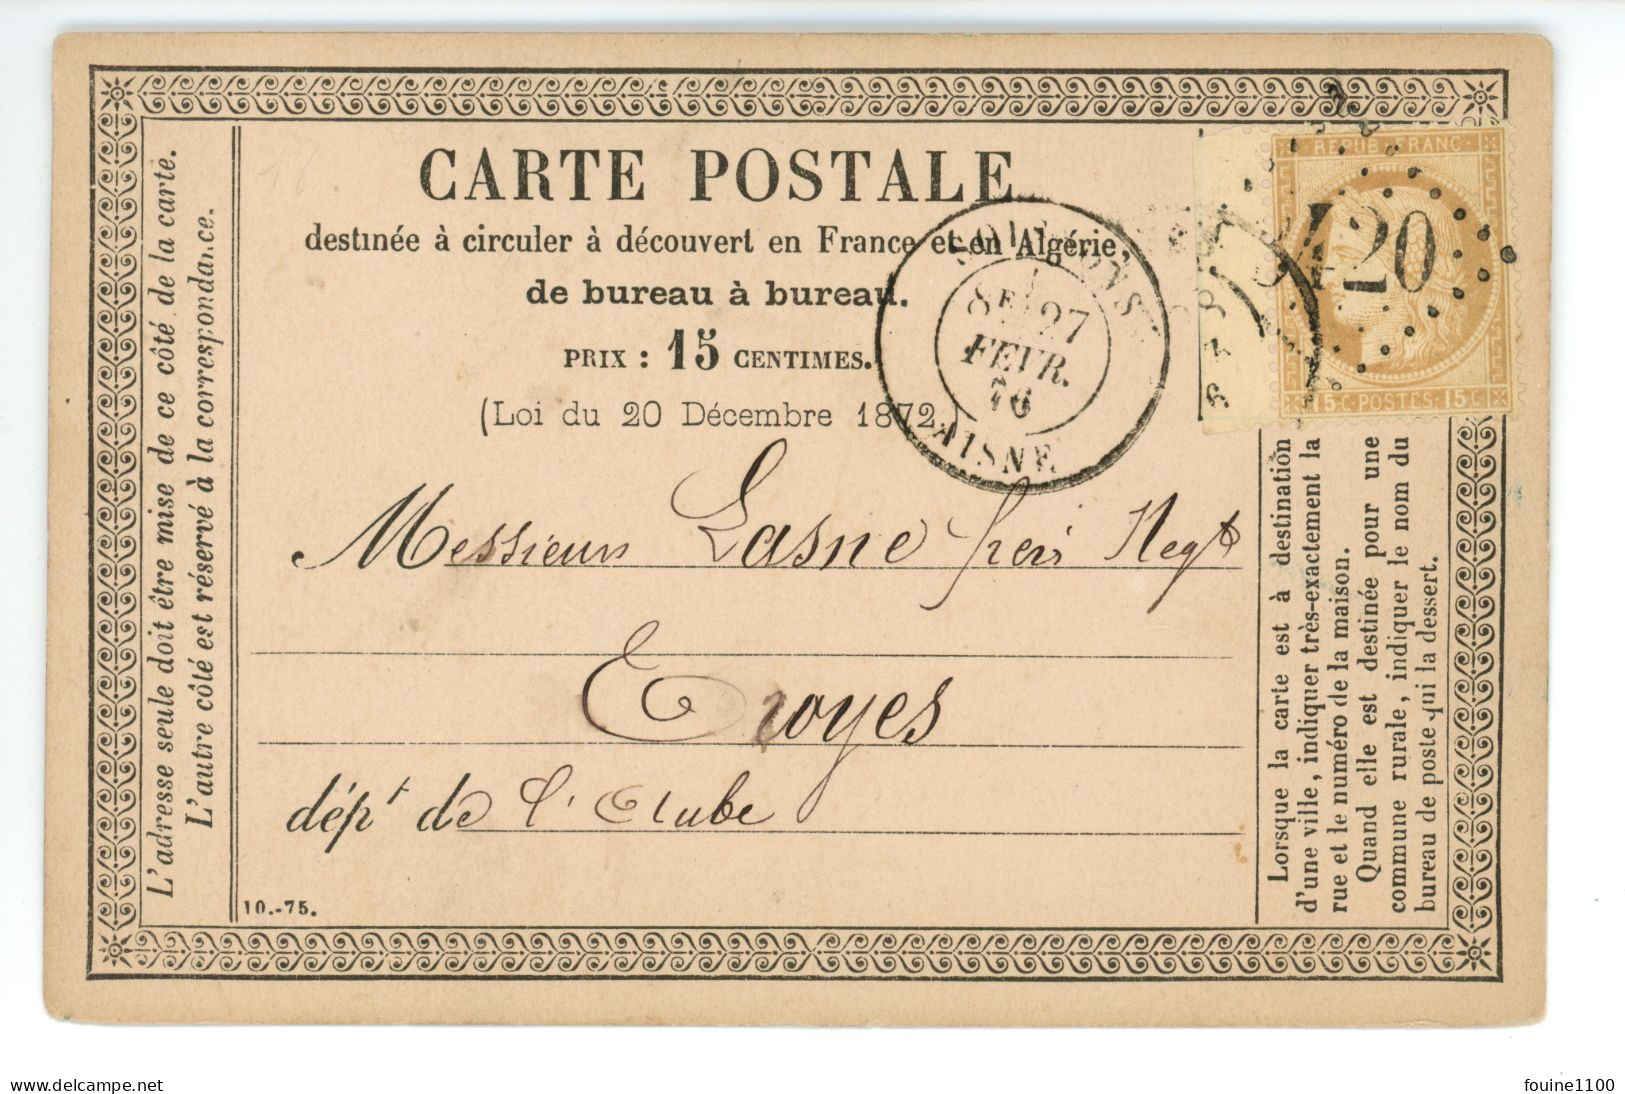 CARTE POSTALE
destinée à circuler à découvert en France et en Algérie,
de bureau à bureau.
PRIX : 15 CENTIMES.
(Loi du 20 Décembre 1872.)
SOISSONS
8E 27
FEVR.
76
AISNE
REPUB. FRANC.
3420
15 C. POSTES. 15 C.
Messieurs Lasne frères Negts
Troyes
dépt de l'Aube
10.-75.
L'adresse seule doit être mise de ce côté de la carte.
L'autre côté est réservé à la correspondance.
Lorsque la carte est à destination
d'une ville, indiquer très-exactement la
rue et le numéro de la maison.
Quand elle est destinée pour une
commune rurale, indiquer le nom du
bureau de poste qui la dessert.
delcampe.net
fouine1100